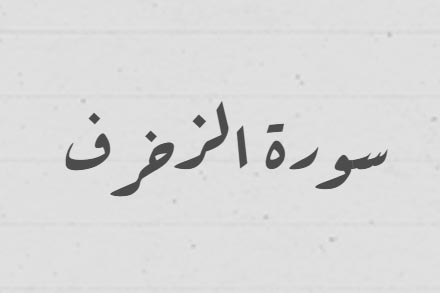 سورة الزخرف